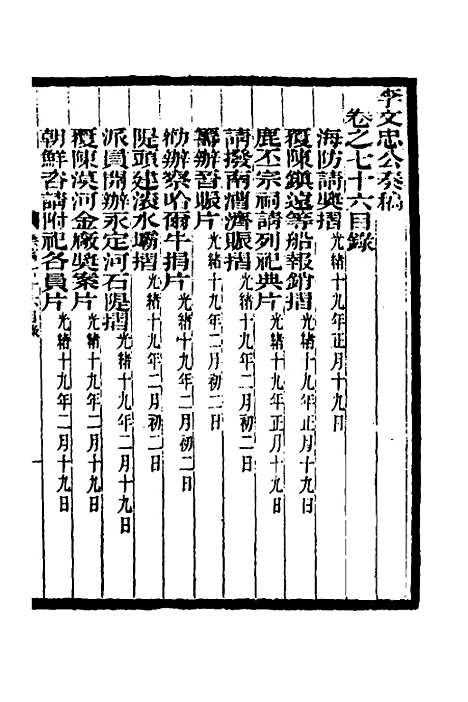 李文忠公奏稿
卷之七十六目錄
海防請獎摺 光緒十九年正月十九日
覆陳鎮遠等船報銷摺 光緒十九年正月十九日
鹿丕宗祠請列祀典片 光緒十九年正月十九日
請撥南漕濟賑摺 光緒十九年二月初二日
籌辦晉賑片 光緒十九年二月初二日
勸辦察哈爾牛捐片 光緒十九年二月初二日
隄頭建滾水壩摺 光緒十九年二月初二日
派員開辦永定河石隄摺 光緒十九年二月十九日
覆陳漠河金廠獎案片 光緒十九年二月十九日
朝鮮咨請附祀各員片 光緒十九年二月十九日